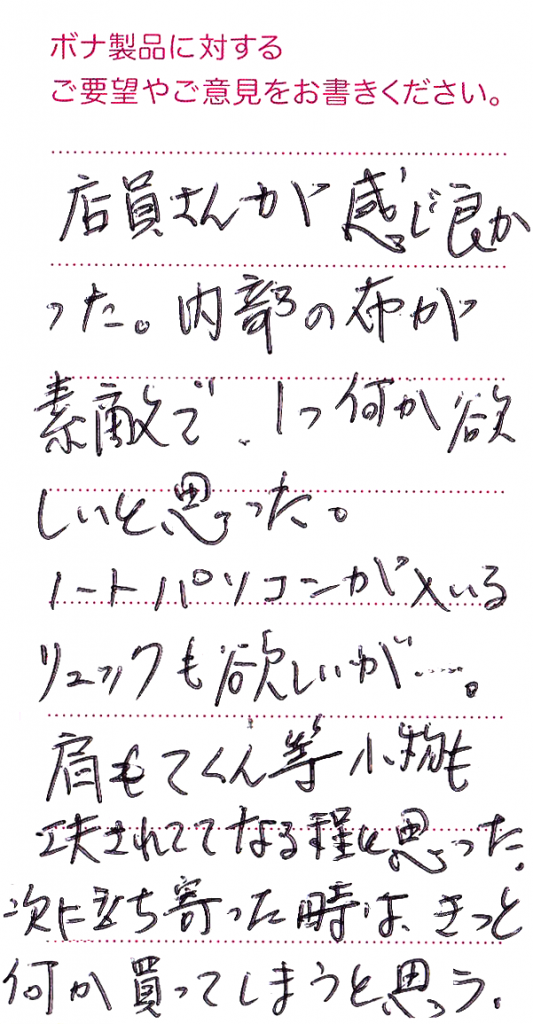 ボナ製品に対する
ご要望やご意見をお書きください。
店員さんが感じ良か
った。内部の布が
素敵で、1つ何か欲
しいと思った。
ノートパソコンが入いる
リュックも欲しいが……。
肩もてくん等小物も
工夫されててなる程と思った。
次に立ち寄った時は、きっと
何か買ってしまうと思う。